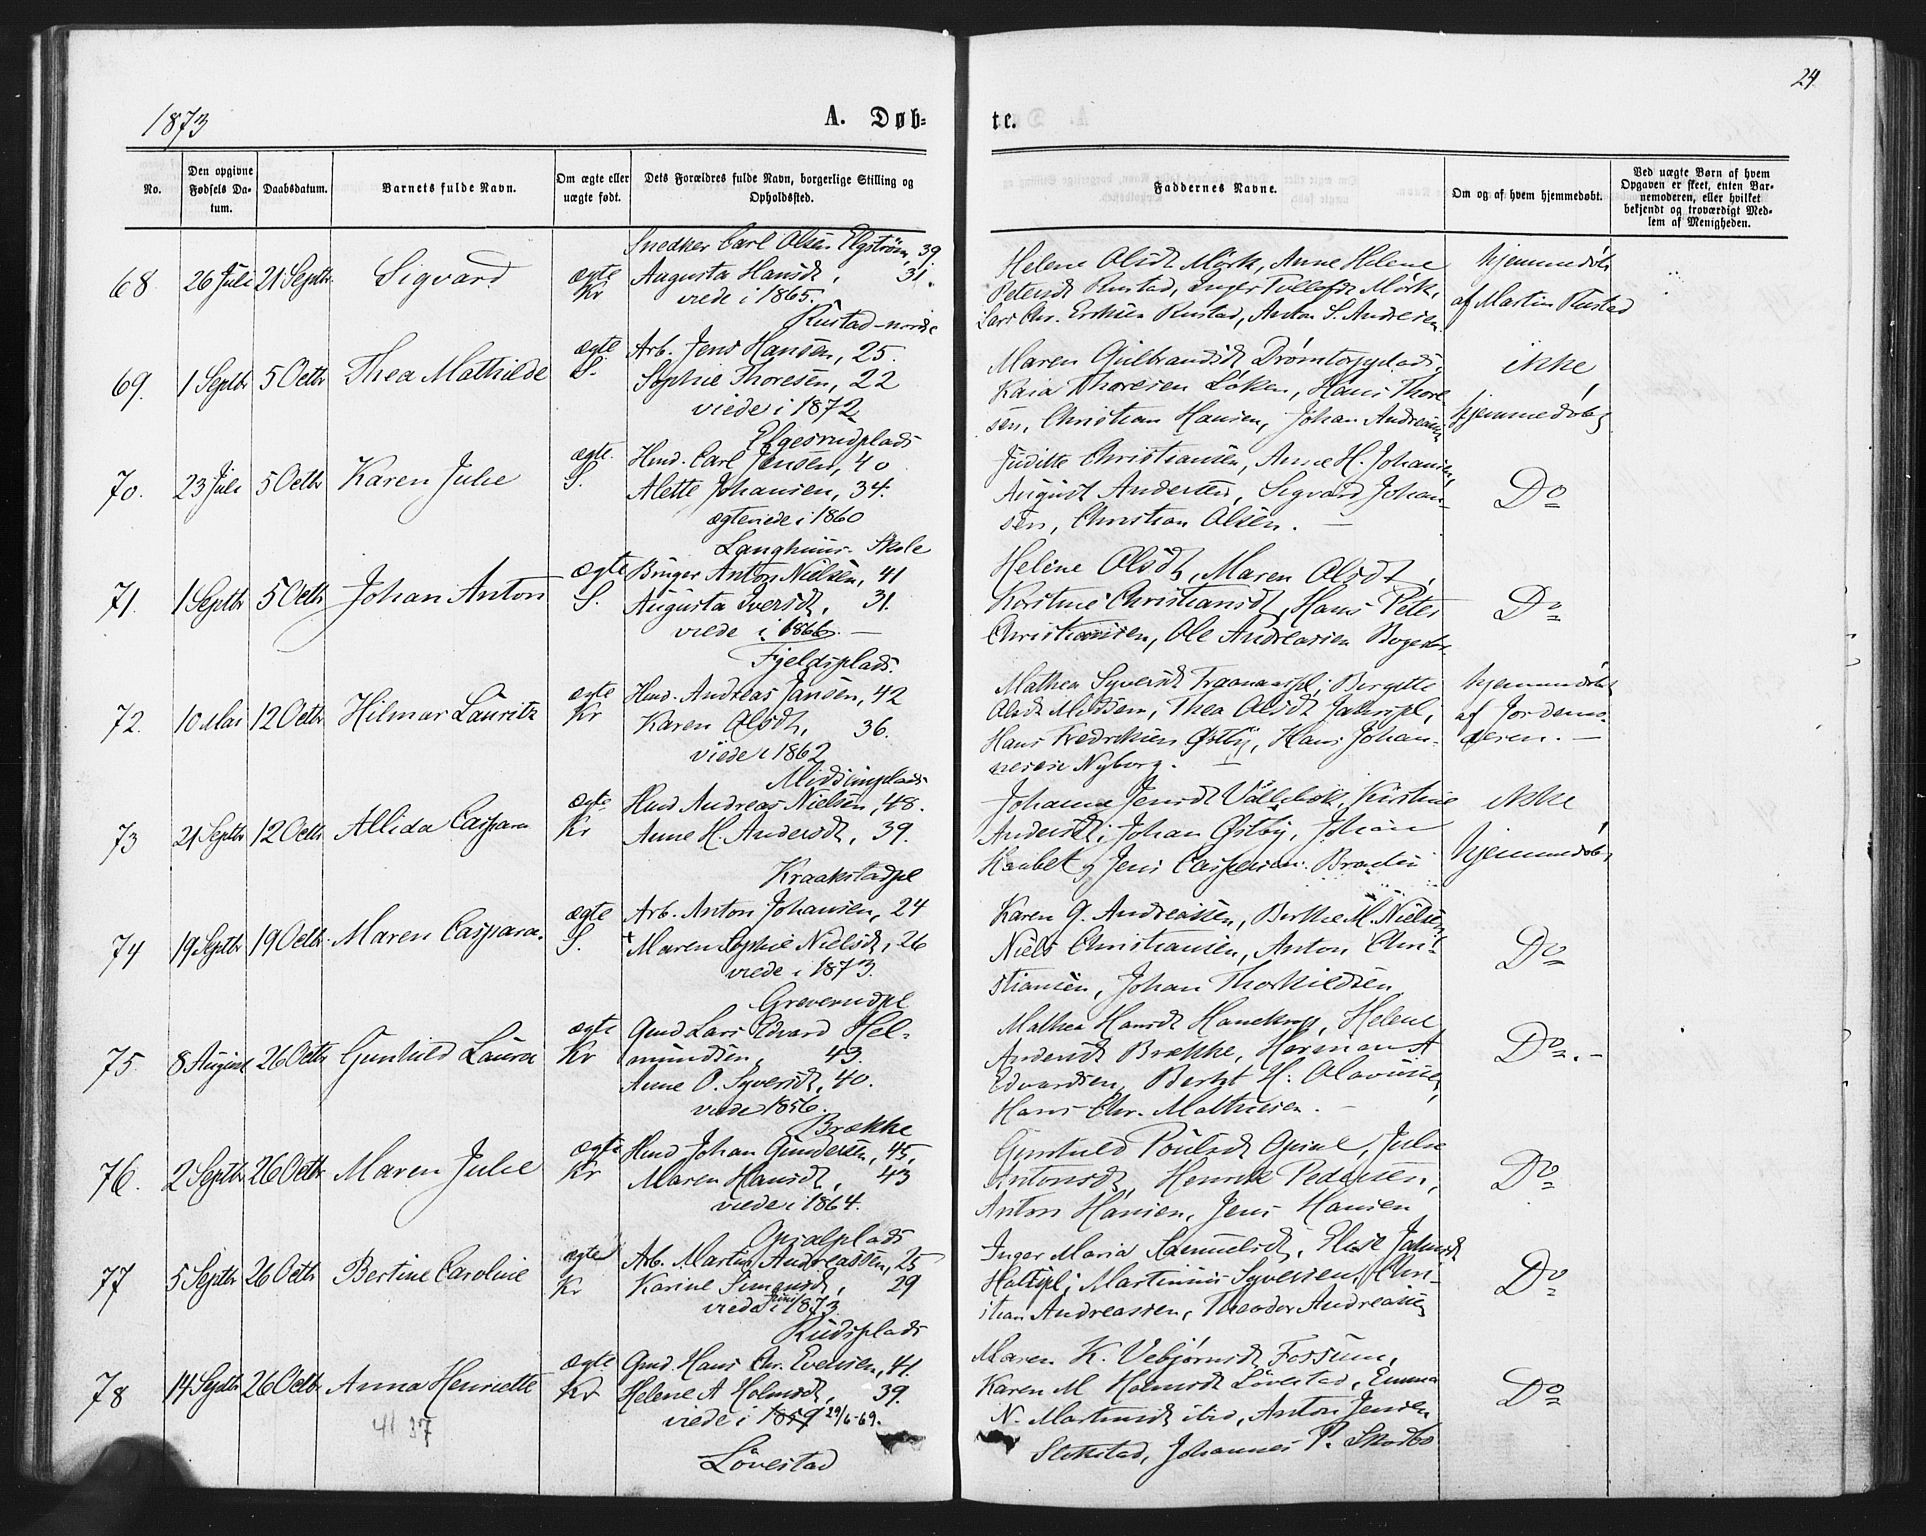 24
1873
A. Døb-
te.
No.
Den opgivne Fødsels Da-
tum.
Daabsdatum.
Barnets fulde Navn.
Om ægte eller
uægte født.
Dets Forældres fulde Navn, borgerlige Stilling og
Opholdssted.
Faddernes Navne.
Om og af hvem hjemmedøbt.
Ved uægte Børn af hvem
Opgaven er skeet, enten Bar-
nemoderen, eller hvilket
bekjendt og troværdigt Med-
lem af Menigheden.
68. 26 Juli 21 Septbr. Sigvard ægte Kr
Snedker Carl Olsen Elgstrøm, 39
Augusta Hansdt, 31.
viede i 1865.
Rustad nordr
Helene Olsdt Mörk, Anne Helene
Petersdt Rustad, Inger Tollefsdt Mörk,
Lars Chr. Rustad, Anton S. Andresen
hjemmedöbt
af Martin Rustad
69. 1 Septbr 5 Octbr Thea Mathilde ægte S.
Arb. Jens Hansen, 25.
Sophie Thoresen, 22
viede i 1872
Elgesrudplads
Maren Gulbrandsdt Drömtorpplads,
Kaia Thoresen Löken, Hans Thore-
sen, Christian Hansen, Johan Andreasen
ikke
hjemmedöbt
70. 23 Juli 5 Octbr Karen Julie ægte. S.
Hmd. Carl Jensen, 40
Alette Johansen, 34.
ægteviede i 1860
Langhuus Skole
Juditte Christiansen, Anne H. Johansen,
August Andersen, Sigvard Johan-
sen, Christian Olsen. —
Do
71. 1 Septbr 5 Octbr Johan Anton ægte S.
Bruger Anton Nielsen, 41
Augusta Iversdt, 31.
viede i 1866. —
Fjeldsplads.
Helene Olsdt, Maren Olsdt,
Kristine Christiansdt, Hans Peter
Christiansen, Ole Andreassen
Do
72. 10 Mai 12 Octbr Hilmar Lauritz ægte Kr
Hmd. Andreas Jansen, 42
Karen Olsdt, 36.
viede i 1862
Mathea Syversdt Birgitte
Olsdt Thea Olsdt
Hans Fredriksen Østby, Hans Johan-
nesen Nyborg. —
hjemmedöbt
af Jordemo-
deren. —
73 21 Septbr 12 Octbr Allida Caspara ægte Kr
Hmd Andreas Nielsen, 48.
Anne H. Andersdt, 39.
Kraakstadpl
Johanne Jensdt Kirstine
Andersdt, Johan Østby, Johan
og Jens Caspersen
ikke
hjemmedöbt
74 19 Septbr 19 Octbr. Maren Caspara. ægte S.
Arb. Anton Johansen, 24
Maren Sophie Nielsdt, 26
viede i 1873.
Greverudpl
Karen G. Andreassen, Berthe M. Nielsen,
Niels Christiansen, Anton Chri-
stiansen, Johan Thorkildsen
Do
75. 8 August 26 Octbr Gunhild Laura ægte Kr
Gmd Lars Edvard Hel-
mundsen, 43.
Anne O. Syversdt, 40.
viede 1856.
Brække
Mathea Hansdt Helene
Andersdt Brække, Herman A
Edvardsen, H.
Hans Chr. Mathiesen. —
Do. —
76. 2 Septbr 26 Octbr Maren Julie ægte Kr
Hmd Johan Gundersen, 45,
Maren Hansdt, 43
viede i 1864.
Gunhild Poulsdt Julie
Antonsdt, Henrik Pedersen,
Anton Hansen, Jens Hansen
Do
77 5 Septbr 26 Octbr Bertine Caroline ægte Kr
Arb. Martin Andreassen, 25
Karine Simensdt, 29
viede i 1873.
Rudsplads
Inger Maria Samuelsdt, Else
Martinius Syversen, Chri-
stian Andreassen, Theodor Andreasen
Do
78 14 Septbr 26 Octbr Anna Henriette ægte Kr
Gmd. Hans Chr. Evensen, 41.
Helene A Holmsdt, 39.
viede i 1859 29/6-69.
Lövestad
Maren K. Vebjörnsdt Fossum,
Karen M Holmsdt Lövestad, Emma
N. Martinsdt ibid, Anton Jensen
Johannes P. Skodbo
Do
41 37